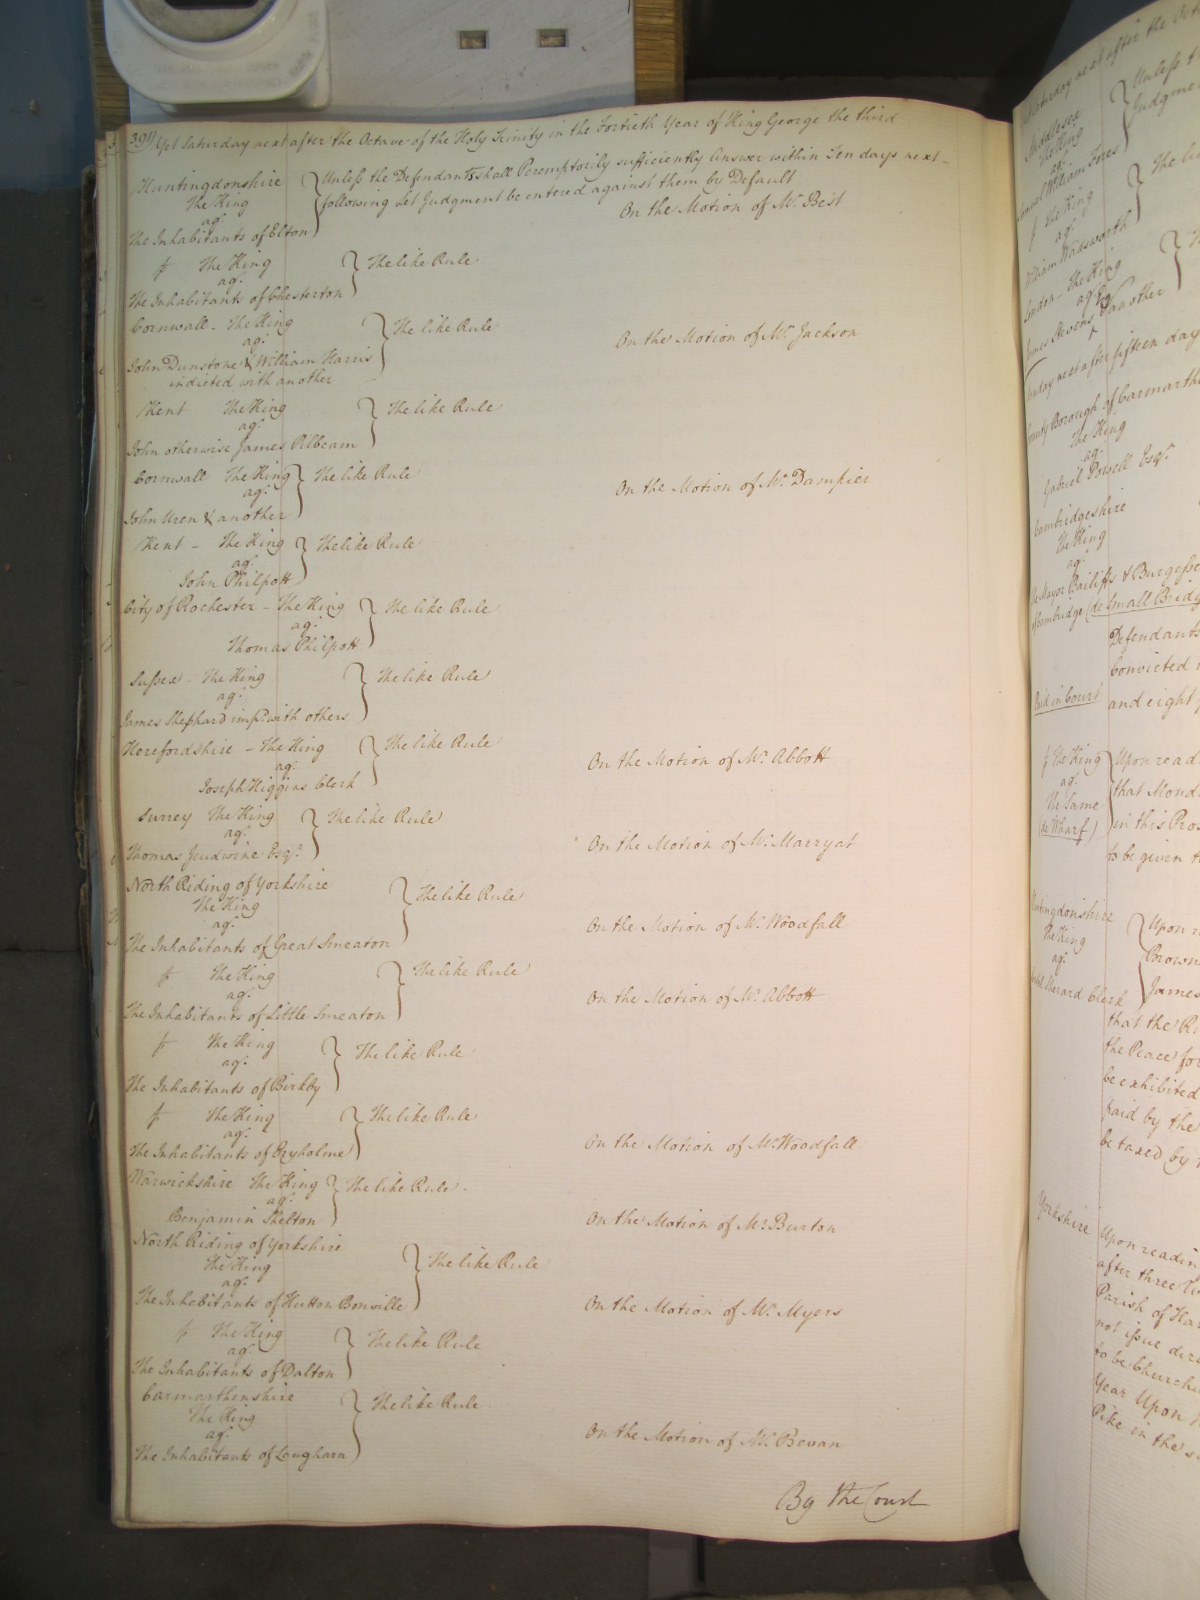 391) Yet Saturday next after the Octave of the Holy Trinity in the Fortieth Year of King George the third
Huntingdonshire
The King
agt
The Inhabitants of Elton
Unless the Defendants shall Peremptorily sufficiently Answer within Ten days next
following Let Judgment be entered against them by Default
On the Motion of Mr. Best
The King
agt
The Inhabitants of Chesterton
The like Rule
Cornwall - The King
agt
John Dunstone & William Harris
indicted with another
The like Rule
On the Motion of Mr. Jackson
Kent The King
agt
John otherwise James Pilbeam
The like Rule
Cornwall The King
agt
John Uren & another
The like Rule
On the Motion of Mr. Dampier
Kent - The King
agt
John Philpott
The like Rule
City of Rochester - The King
agt
Thomas Philpott
The like Rule
Sussex - The King
agt
James Shephard imp.d with others
The like Rule
Herefordshire - The King
agt
Joseph Higgins Clerk
The like Rule
On the Motion of Mr. Abbott
Surrey The King
agt
Thomas Jeudwine Esqr.
The like Rule
On the Motion of Mr. Marryat
North Riding of Yorkshire
The King
agt
The Inhabitants of Great Smeaton
The like Rule
On the Motion of Mr. Woodfall
The King
agt
The Inhabitants of Little Smeaton
The like Rule
On the Motion of Mr. Abbott
The King
agt
The Inhabitants of Birkby
The like Rule
The King
agt
The Inhabitants of Eryholme
The like Rule
On the Motion of Mr. Woodfall
Warwickshire The King
agt
Benjamin Shelton
The like Rule
On the Motion of Mr. Burton
North Riding of Yorkshire
The King
agt
The Inhabitants of Hutton Bonville
The like Rule
On the Motion of Mr. Myers
The King
agt
The Inhabitants of Dalton
The like Rule
Carmarthenshire
The King
agt
The Inhabitants of Laugharn
The like Rule
On the Motion of Mr. Bevan
By the Court
Saturday next after the
Middlesex
The King
agt
Samuel William Fores
Unless
Judgment
The King
agt
William Wadsworth
The
London - The King
agt
James Stevens & another
day next after fifteen day
Borough of Carmarthe
The King
agt
Gabriel Powell Esqr.
Cambridgeshire
The King
agt
Mayor Bailiffs & Burgesses
of Cambridge (de Small Bridg
Defendants
Convicted
Paid in Court
and eight
The King
agt
The Same
(de Wharf)
Upon readi
that Mond
in this Pros
to be given
Huntingdonshire
The King
agt
Sherard Clerk
Upon
Brown
James
that the
the Peace for
be exhibited
paid by the
be taxed by
Yorkshire
Upon readin
after three
Parish of Ha
not issue dire
to be Church
Year Upon
Pike in the